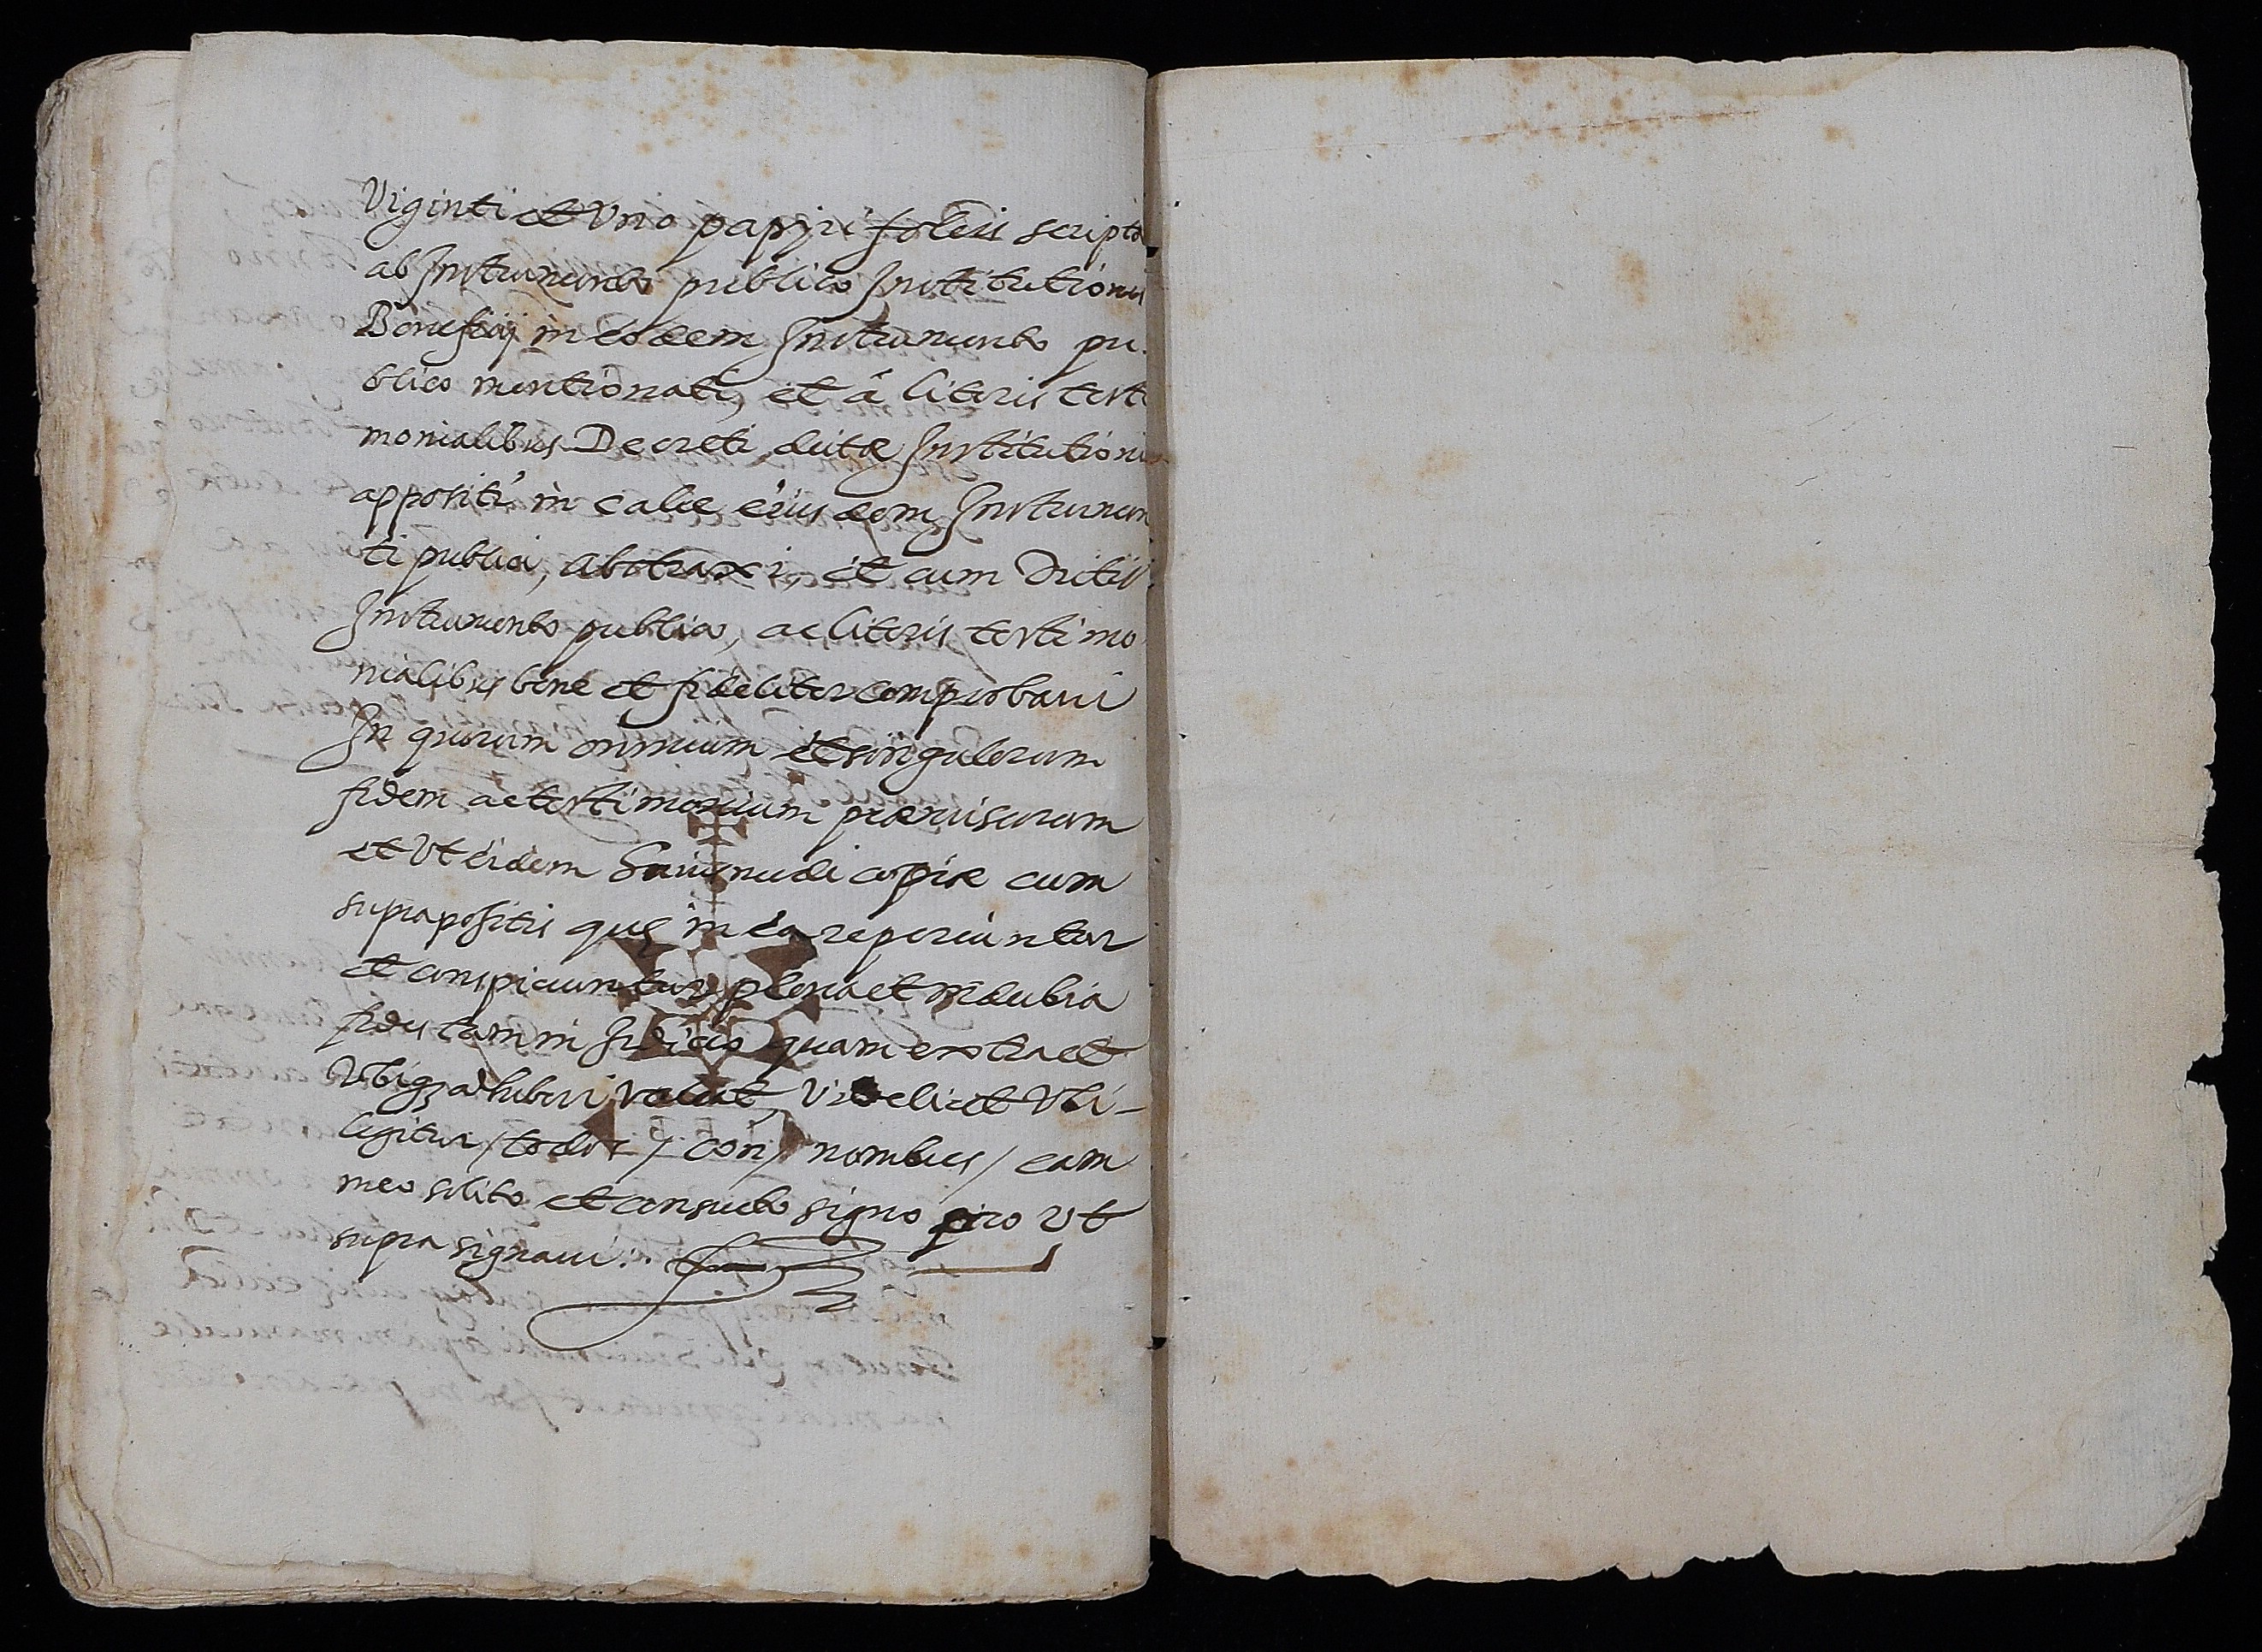 Viginti et Uno papiri foleis scripto
ab Instrumento publico Institutionis
Beneficij in eodem Instrumento pu.
blico mentionati, et â literis testi
monialibus Decreti dictæ Institutionis
appositi in calce eiusdem Instrumen
ti publici, abstraxi, et cum Dictis
Instrumento publico, ac literis testimo
nialibus bene et fideliter comprobavi
In quorum omnium et singulorum
fidem ac testimonium præmisorum
et Ut eidem huiusmodi copiæ cum
suprapositis quę in ea reperiuntur
et conspiciuntur plena et indubia
fides tam in Judicio quam extra et
Ubiqз adhiberi valeat, Videlicet Ubi-
legitur / todos / con / nombres / eam
meo solito et consueto signo pro Ut
supra signavi.